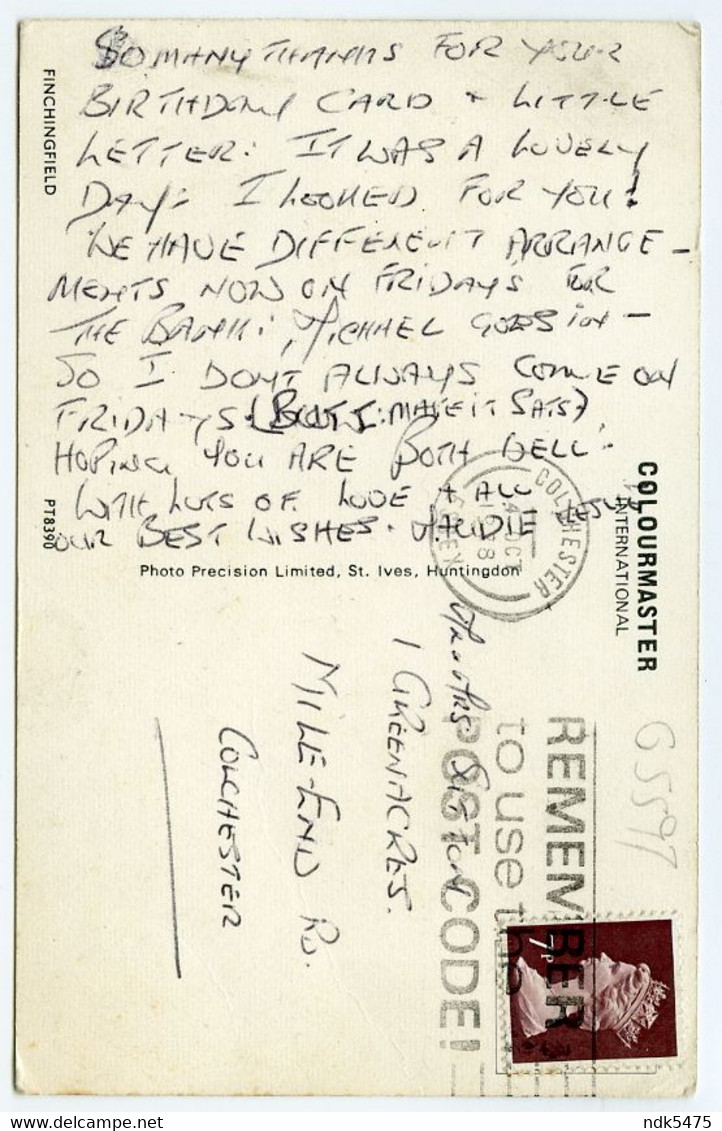 SO MANY THANKS FOR YOUR
BIRTHDAY CARD + LITTLE
LETTER. IT WAS A LOVELY
DAY. I LOOKED FOR YOU!
WE HAVE DIFFERENT ARRANGE-
MENTS NOW ON FRIDAYS FOR
THE BANK: MICHAEL GOES IN -
SO I DON'T ALWAYS COME ON
FRIDAYS (BUT I MAKE IT SATS)
HOPING YOU ARE BOTH WELL.
WITH LOTS OF LOVE + ALL
OUR BEST WISHES. MAUDIE
FINCHINGFIELD
PT8390
Photo Precision Limited, St. Ives, Huntingdon
COLOURMASTER
INTERNATIONAL
COLCHESTER
OCT
ESSEX
Mr & Mrs
1 GREENACRES.
MILE-END RD.
COLCHESTER
REMEMBER
to use the
POST CODE!
G5597
7p
delcampe.net
ndk5475